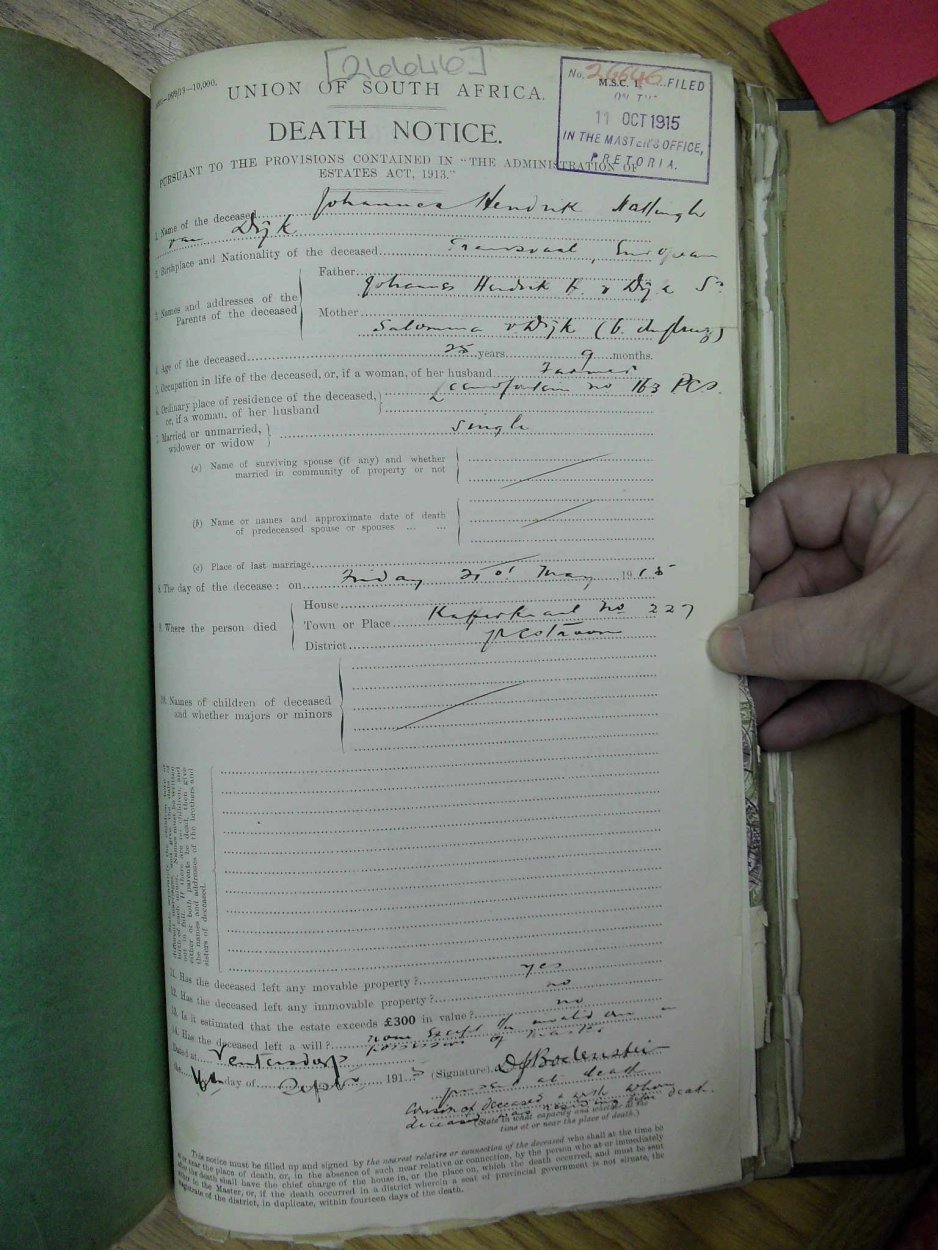 [26646]
—10,000.
UNION OF SOUTH AFRICA.
No. 26646 FILED
M.S.C. 1.
ON THE
11 OCT 1915
IN THE MASTER'S OFFICE,
PRETORIA.
DEATH NOTICE.
PURSUANT TO THE PROVISIONS CONTAINED IN "THE ADMINISTRATION OF
ESTATES ACT, 1913."
1. Name of the deceased Johannes Hendrik
van Dijk
2. Birthplace and Nationality of the deceased Transvaal, European
3. Names and addresses of the
Parents of the deceased
Father
Johannes Hendrik v Dijk Sr
Mother
Salomina v Dijk (b. du Preez)
4. Age of the deceased 25 years 9 months.
5. Occupation in life of the deceased, or, if a woman, of her husband Farmer
6. Ordinary place of residence of the deceased,
or, if a woman, of her husband
no 163 PCS.
7. Married or unmarried,
widower or widow
single
(a) Name of surviving spouse (if any) and whether
married in community of property or not
(b) Name or names and approximate date of death
of predeceased spouse or spouses ... ...
(c) Place of last marriage
8. The day of the decease: on Friday May 1915
9. Where the person died
House
Town or Place Kafferkraal No 227
District
10. Names of children of deceased
and whether majors or minors
either or both parents be dead, then give
the names and addresses of the brothers and
sisters of deceased.
11. Has the deceased left any movable property? yes
12. Has the deceased left any immovable property? no
13. Is it estimated that the estate exceeds £300 in value? no
14. Has the deceased left a will? none Except an invalid one in
possession of
Dated at Ventersdorp
the day of Septr 1915 (Signature) Bodenstein
present at death
cousin of deceased & with whom
deceased was residing before death.
(State in what capacity and whether at the
time at or near the place of death.)
This notice must be filled up and signed by the nearest relative or connection of the deceased who shall at the time be
at or near the place of death, or, in the absence of such near relative or connection, by the person who at or immediately
after the death shall have the chief charge of the house in, or the place on, which the death occurred, and must be sent
either to the Master, or, if the death occurred in a district wherein a seat of provincial government is not situate, the
magistrate of the district, in duplicate, within fourteen days of the death.